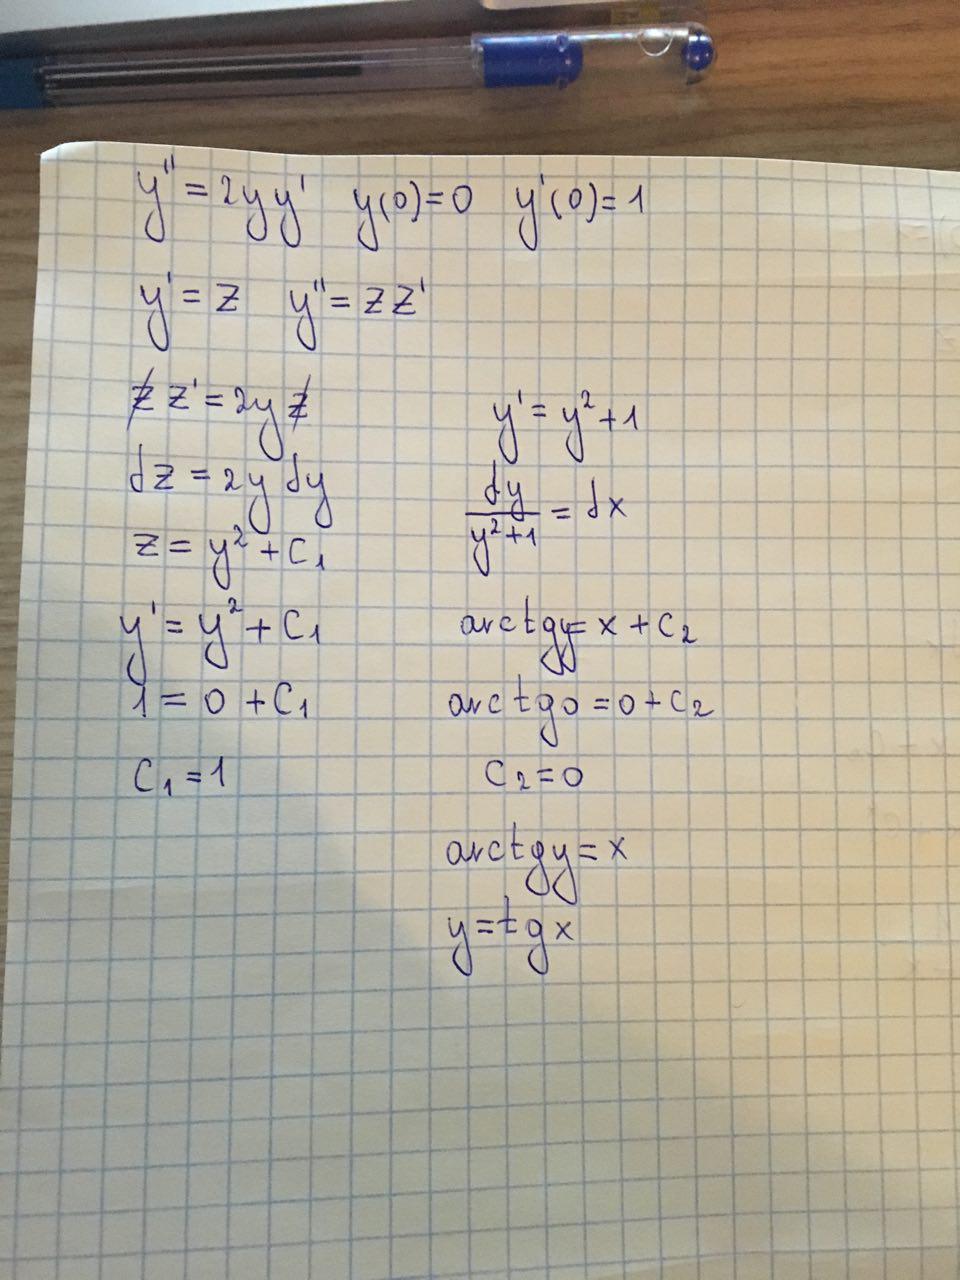 y'' = 2yy'   y(0)=0   y'(0)=1
y' = z   y'' = zz'
z z' = 2y z
dz = 2y dy
z = y² + C₁
y' = y² + C₁
1 = 0 + C₁
C₁ = 1
y' = y² + 1
dy/(y²+1) = dx
arctgy = x + C₂
arctg0 = 0 + C₂
C₂ = 0
arctgy = x
y = tgx